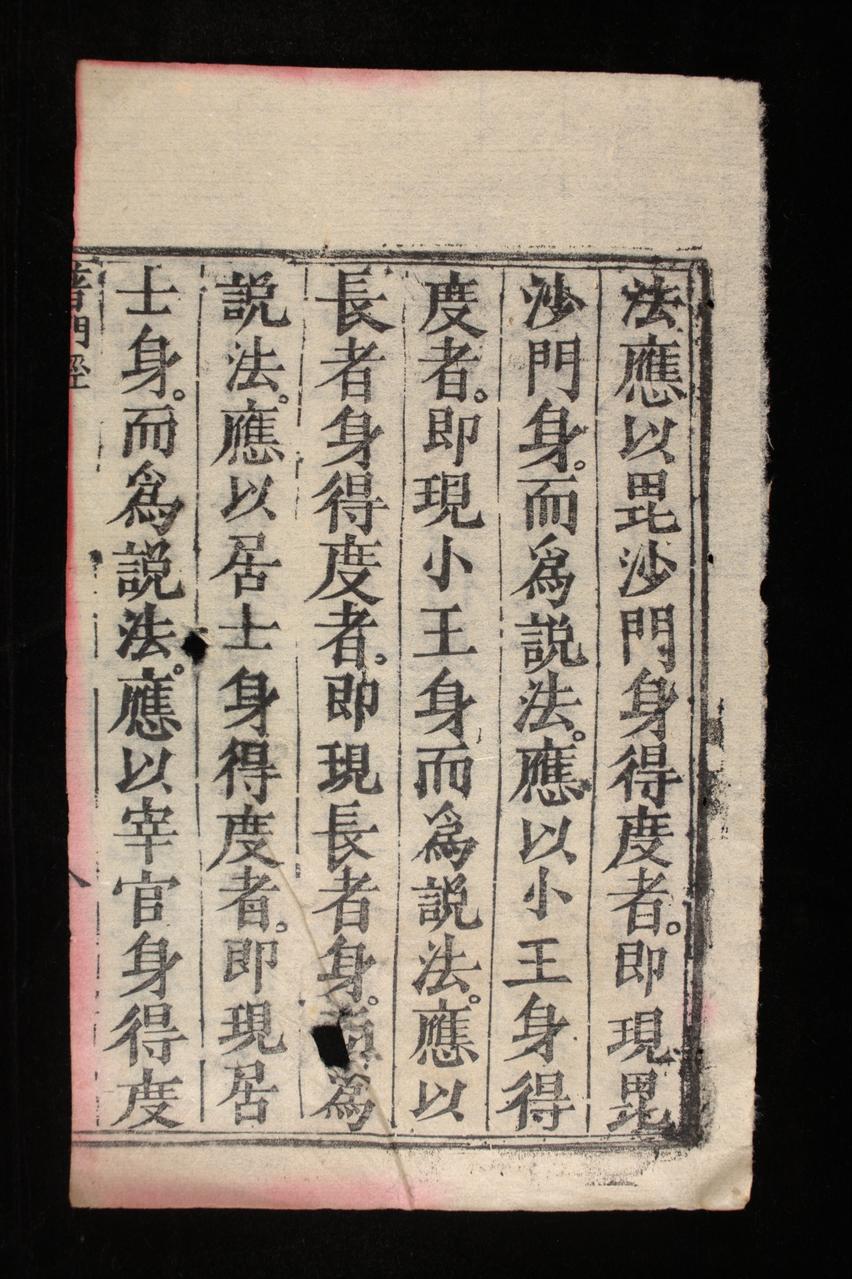 法應以毘沙門身得度者。即現毘
沙門身。而爲説法。應以小王身得
度者。即現小王身而爲説法。應以
長者身得度者。即現長者身。而爲
説法。應以居士身得度者。即現居
士身。而爲説法。應以宰官身得度
普門經